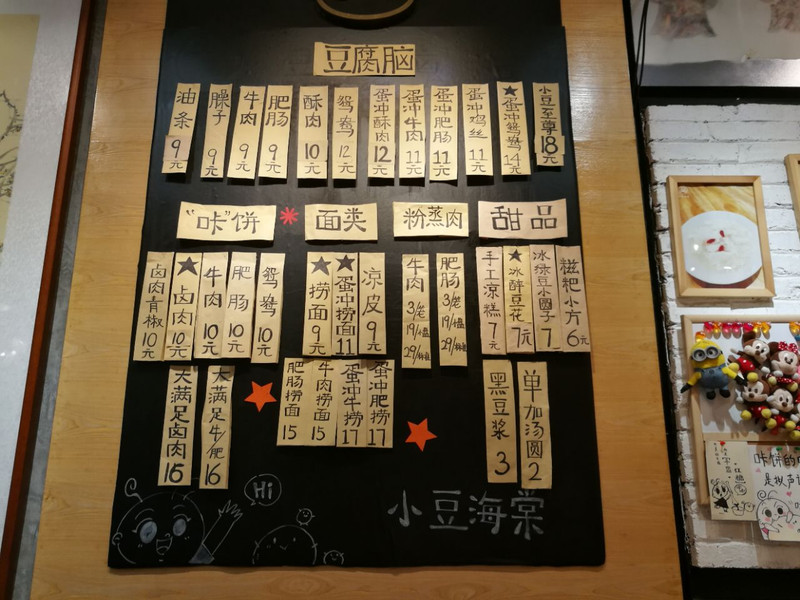 豆腐脑
油条 9元
臊子 9元
牛肉 9元
肥肠 9元
酥肉 10元
鸳鸯 12元
蛋冲酥肉 12元
蛋冲牛肉 11元
蛋冲肥肠 11元
蛋冲鸡丝 11元
★蛋冲鸳鸯 14元
小豆至尊 18元
“咔”饼
面类
粉蒸肉
甜品
卤肉青椒 10元
★卤肉 10元
牛肉 10元
肥肠 10元
鸳鸯 10元
★捞面 9元
★蛋冲捞面 11
凉皮 9元
牛肉
肥肠
手工凉糕 7元
★冰醉豆花 7元
冰绿豆小圆子 7
糍粑小方 6元
大满足卤肉 15
大满足牛/肥 16
肥肠捞面 15
牛肉捞面 15
蛋冲牛捞 17
蛋冲肥捞 17
黑豆浆 3
单加汤圆 2
Hi
小豆海棠
咔饼的
是拟声